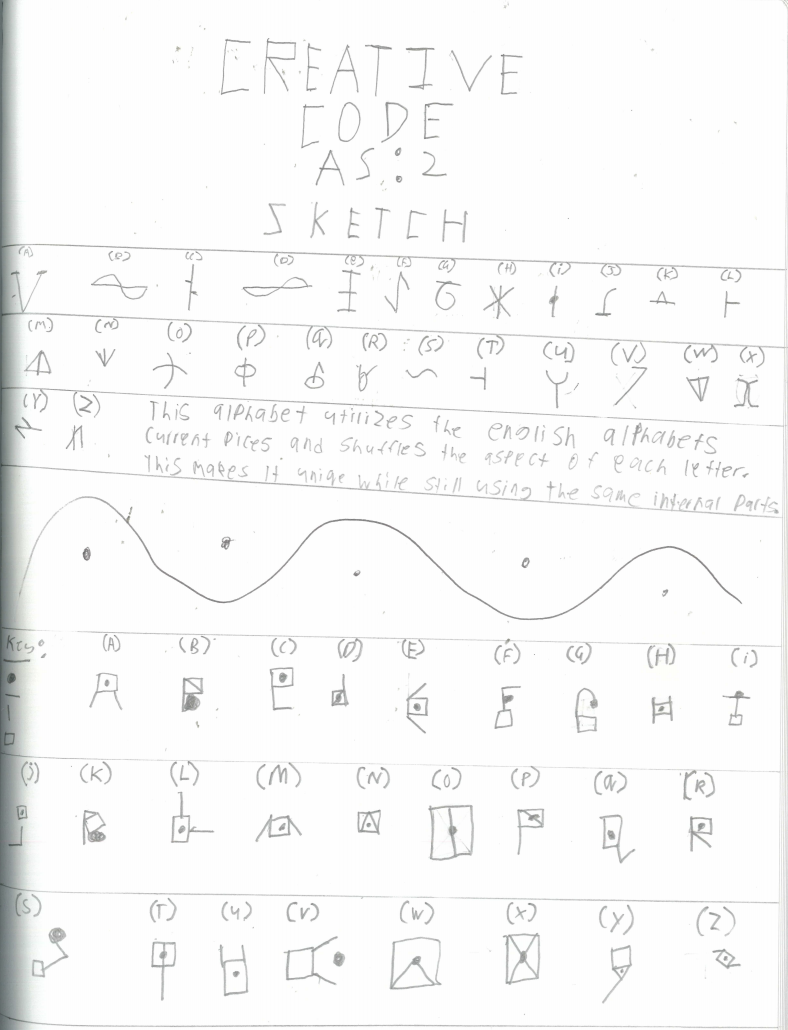 CREATIVE
CODE
AS:2
SKETCH
(A) (B) (C) (D) (E) (F) (G) (H) (i) (J) (K) (L)
(M) (N) (O) (P) (Q) (R) (S) (T) (U) (V) (W) (X)
(Y) (Z) This alphabet utilizes the english alphabets
current pices and shuffles the aspect of each letter.
This makes it uniqe while still using the same internal parts.
Key: (A) (B) (C) (D) (E) (F) (G) (H) (i)
(J) (K) (L) (M) (N) (O) (P) (Q) (R)
(S) (T) (U) (V) (W) (X) (Y) (Z)